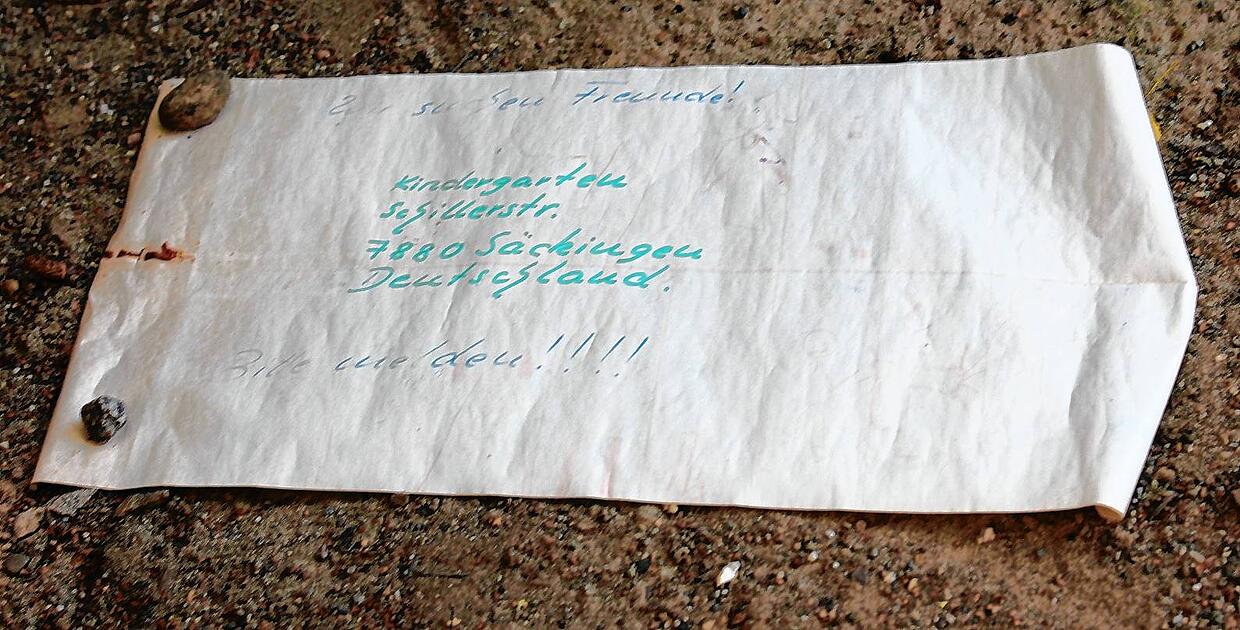 suchen Freunde!
Kindergarten
Schillerstr.
7880 Säckingen
Deutschland.
Bitte melden!!!!